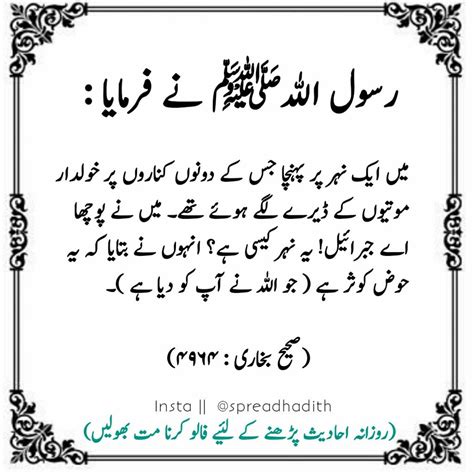 رسول اللہ ﷺ نے فرمایا :
میں ایک نہر پر پہنچا جس کے دونوں کناروں پر خولدار
موتیوں کے ڈیرے لگے ہوئے تھے۔ میں نے پوچھا
اے جبرائیل! یہ نہر کیسی ہے؟ انہوں نے بتایا کہ یہ
حوض کوثر ہے ( جو اللہ نے آپ کو دیا ہے )۔
(صحیح بخاری : ۴۹۶۴)
Insta || @spreadhadith
(روزانہ احادیث پڑھنے کے لئیے فالو کرنا مت بھولیں)